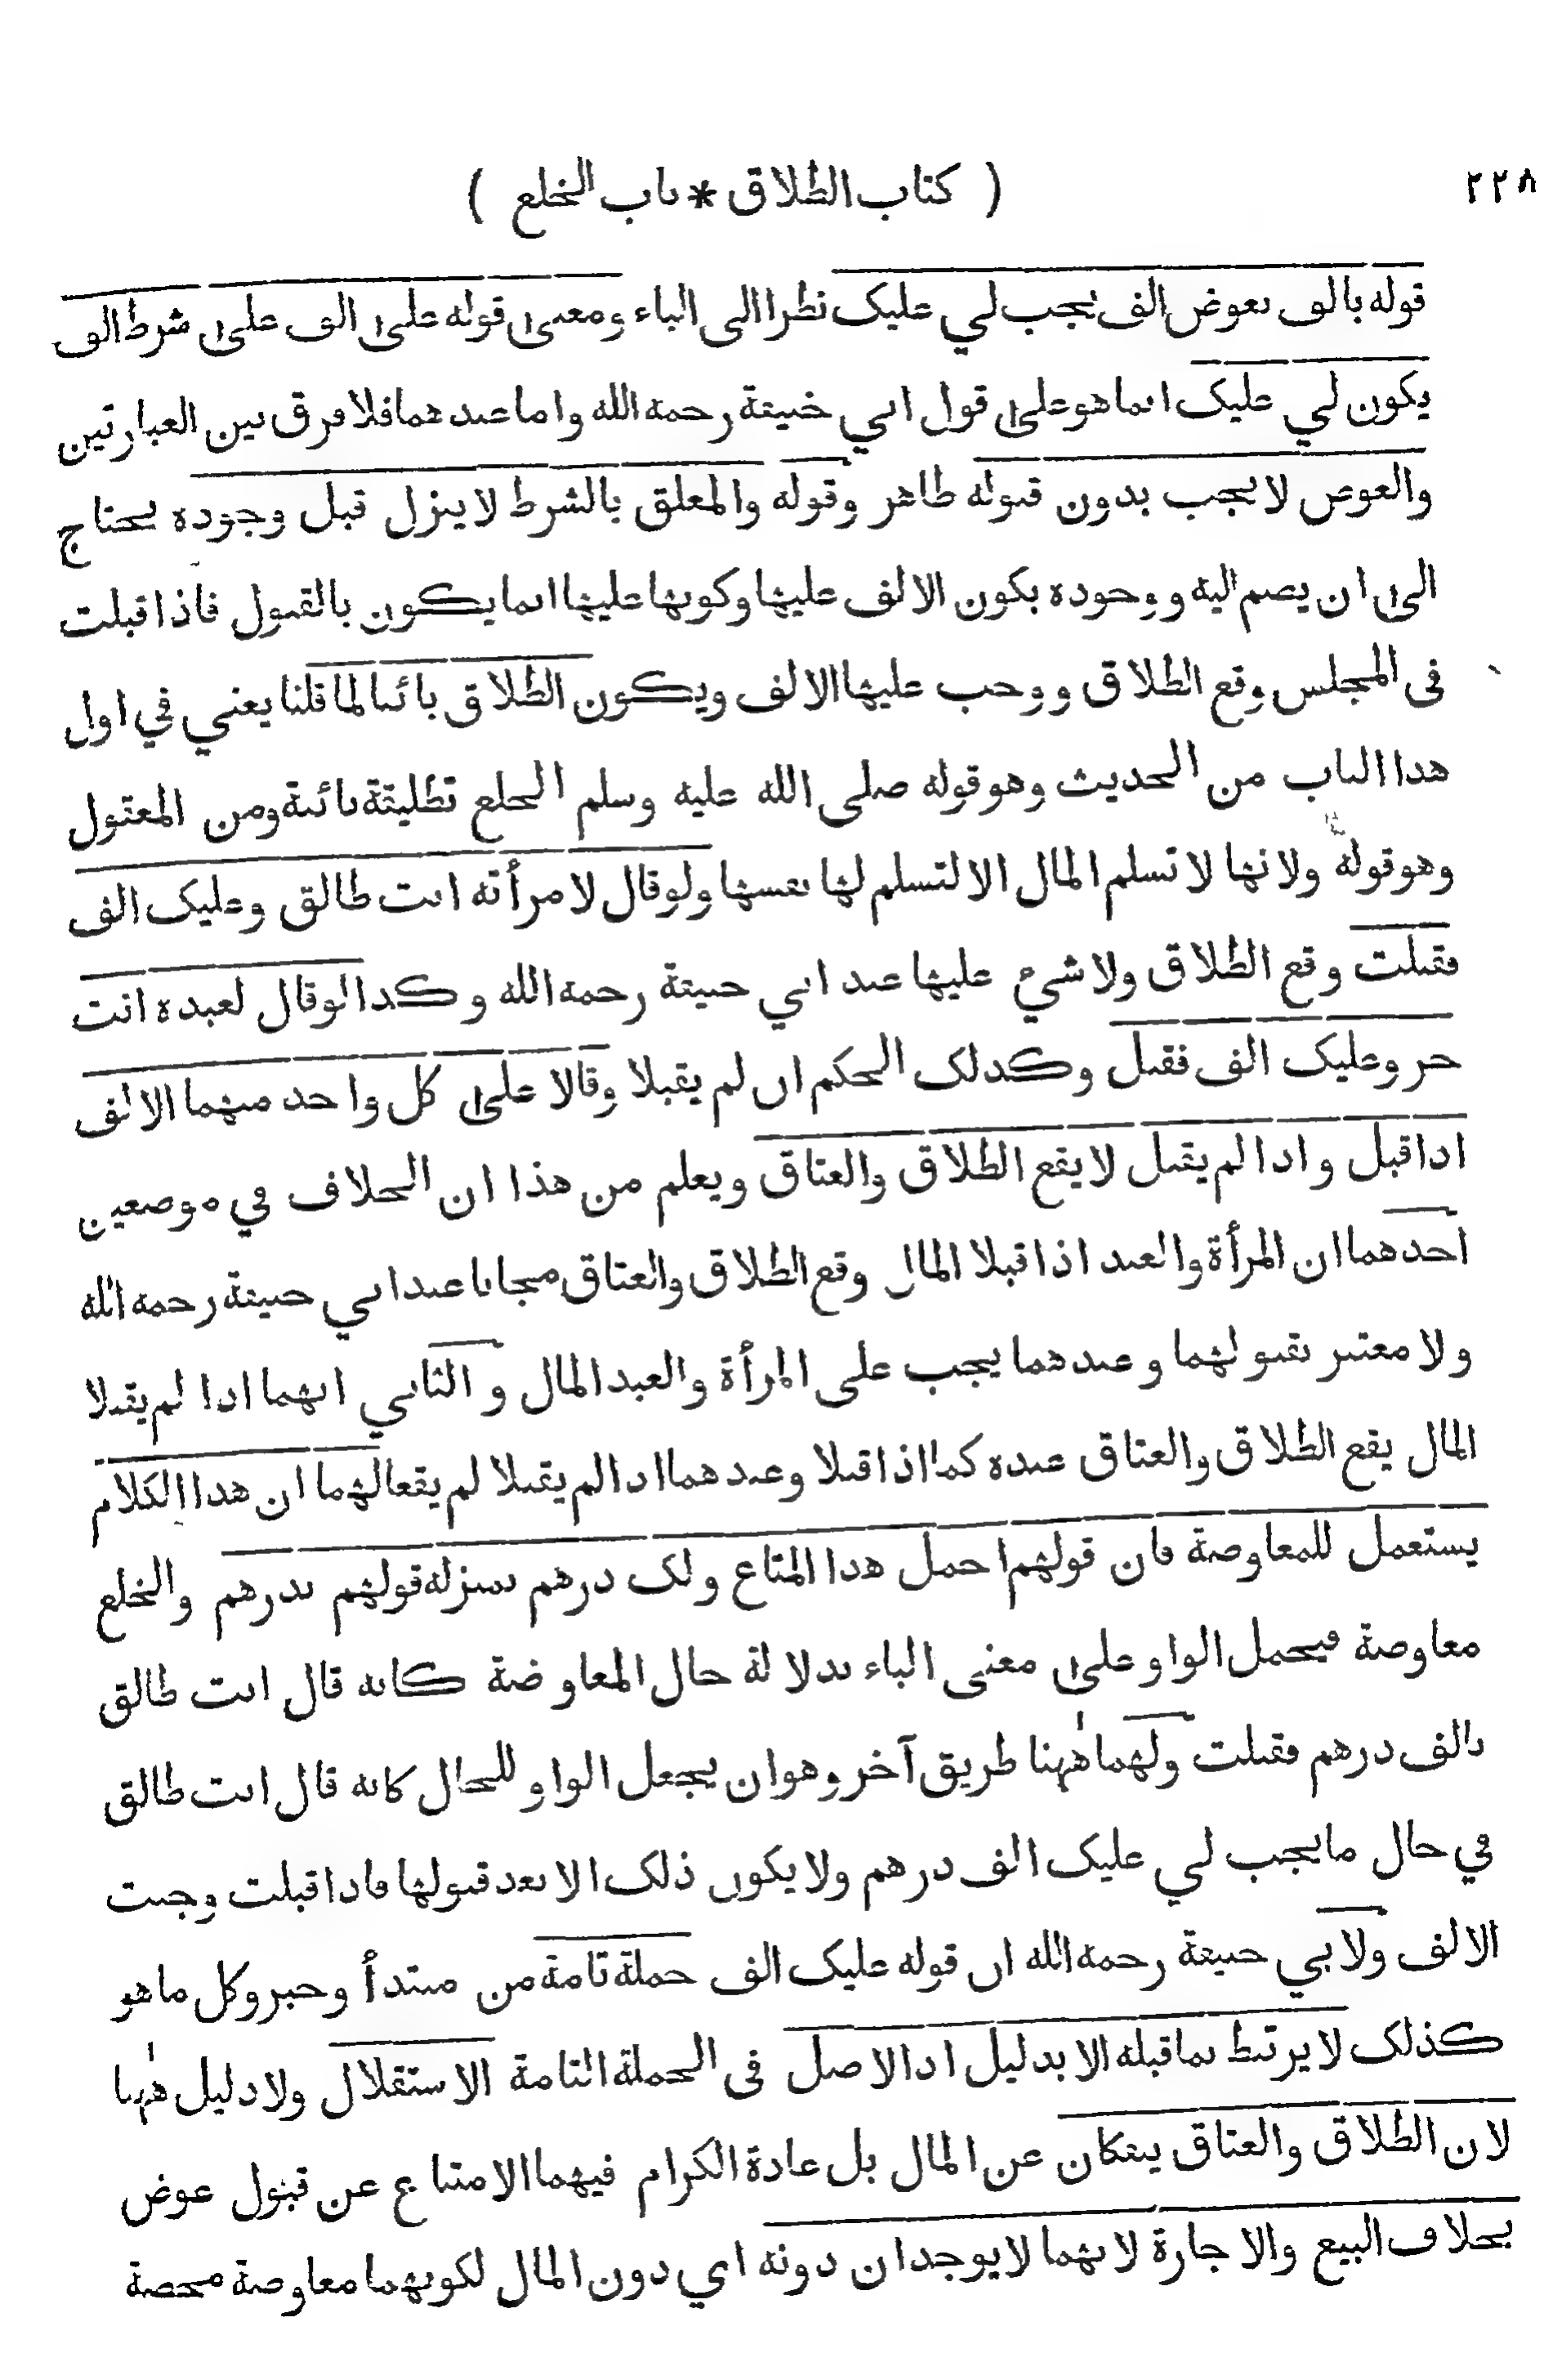 ٢٢٨ ( كتاب الطلاق * باب الخلع )
قوله بالف بعوض الف يجب لي عليك نظرا الى الباء ومعنى قوله على الف على شرط الف
يكون لي عليك انما هو على قول ابي حنيفة رحمه الله واما عندهما فلا فرق بين العبارتين
والعوض لا يجب بدون قبوله ظاهر وقوله والمعلق بالشرط لا ينزل قبل وجوده يحتاج
الى ان يضم اليه ووجوده بكون الالف عليها وكونها عليها انما يكون بالقبول فاذا قبلت
فى المجلس وقع الطلاق ووجب عليها الالف ويكون الطلاق بائنا لما قلنا يعني في اول
هذا الباب من الحديث وهو قوله صلى الله عليه وسلم الخلع تطليقة بائنة ومن المعقول
وهو قوله ولانها لا تسلم المال الا لتسلم لها نفسها ولو قال لامرأته انت طالق وعليك الف
فقبلت وقع الطلاق ولا شيء عليها عند ابي حنيفة رحمه الله وكذا لو قال لعبده انت
حر وعليك الف فقبل وكذلك الحكم ان لم يقبلا وقالا على كل واحد منهما الالف
اذا قبل واذا لم يقبل لا يقع الطلاق والعتاق ويعلم من هذا ان الخلاف في موضعين
احدهما ان المرأة والعبد اذا قبلا المال وقع الطلاق والعتاق مجانا عند ابي حنيفة رحمه الله
ولا معتبر بقبولهما وعندهما يجب على المرأة والعبد المال والثاني انهما اذا لم يقبلا
المال يقع الطلاق والعتاق عنده كما اذا قبلا وعندهما اذا لم يقبلا لم يقعا لهما ان هذا الكلام
يستعمل للمعاوضة فان قولهم احمل هذا المتاع ولك درهم بمنزلة قولهم بدرهم والخلع
معاوضة فيحمل الواو على معنى الباء بدلالة حال المعاوضة كانه قال انت طالق
بالف درهم فقبلت ولهما ههنا طريق آخر وهو ان يجعل الواو للحال كانه قال انت طالق
في حال ما يجب لي عليك الف درهم ولا يكون ذلك الا بعد قبولها فاذا قبلت وجبت
الالف ولابي حنيفة رحمه الله ان قوله عليك الف جملة تامة من مبتدأ وخبر وكل ما هو
كذلك لا يرتبط بما قبله الا بدليل اذ الاصل فى الجملة التامة الاستقلال ولا دليل ههنا
لان الطلاق والعتاق ينفكان عن المال بل عادة الكرام فيهما الامتناع عن قبول عوض
بخلاف البيع والاجارة لانهما لا يوجدان دونه اي دون المال لكونهما معاوضة محضة